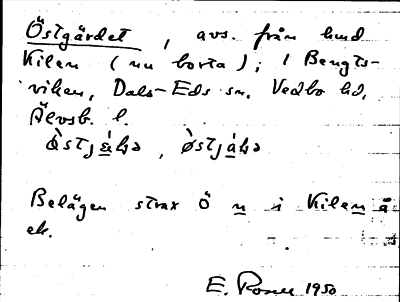 Östgärdet, avs. från hmd
Kilen (nu borta); i Bengts-
viken, Dals-Eds sn. Vedbo hd,
Älvsb. l.
Belägen strax Ö n i Kilen å
ek.
E. Rosell 1950